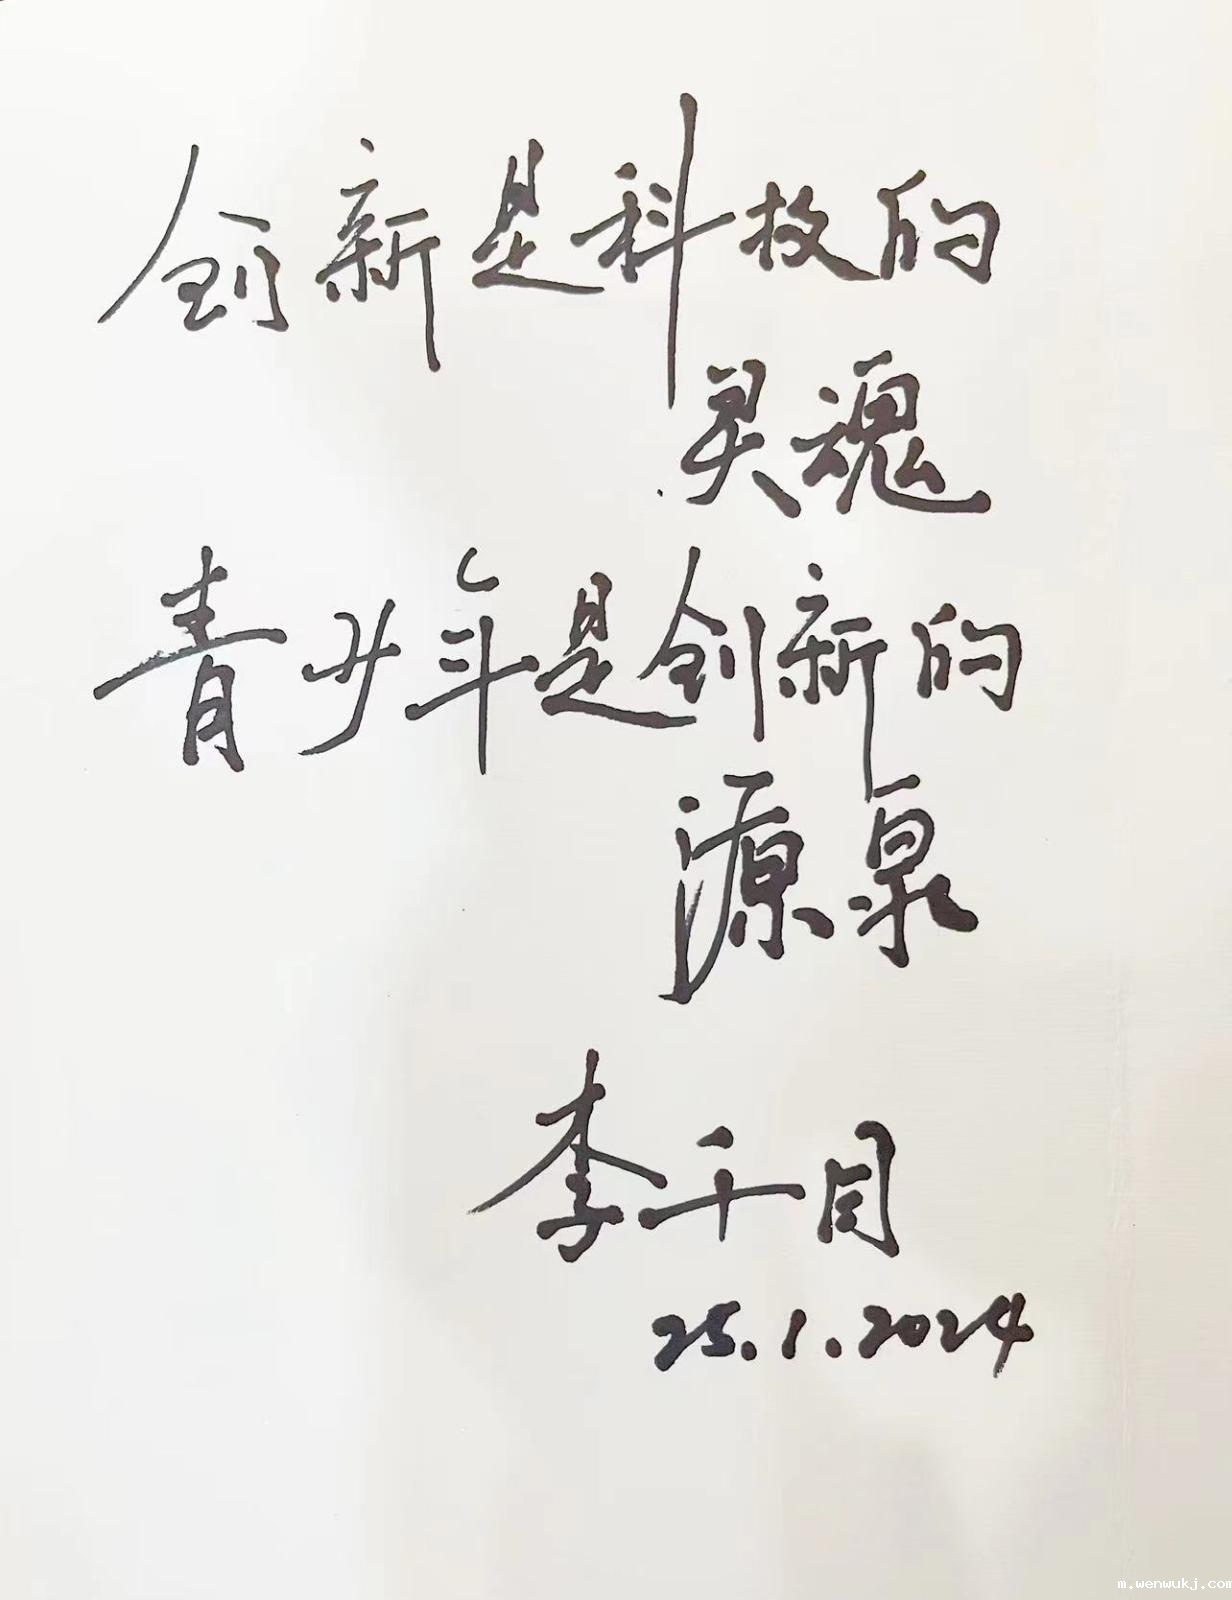 创新是科技的
灵魂
青少年是创新的
源泉
李千目
25.1.2024
m.wenwukj.com